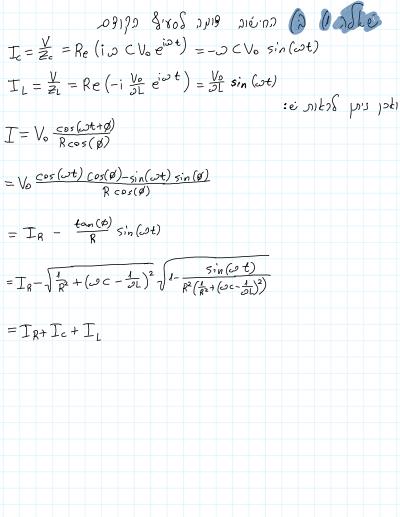 שאלה 1 ב) החישוב דומה לסעיף הקודם
I_C = V/Z_C = Re(iωCV₀e^{iωt}) = -ωCV₀ sin(ωt)
I_L = V/Z_L = Re(-i V₀/ωL e^{iωt}) = V₀/ωL sin(ωt)
ואכן ניתן לראות ש:
I = V₀ cos(ωt+ϕ)/Rcos(ϕ)
= V₀ cos(ωt)cos(ϕ)-sin(ωt)sin(ϕ)/Rcos(ϕ)
= I_R - tan(ϕ)/R sin(ωt)
= I_R - √(1/R² + (ωC - 1/ωL)²) √(1 - sin(ωt)/R²(1/R² + (ωC - 1/ωL)²))
= I_R + I_C + I_L